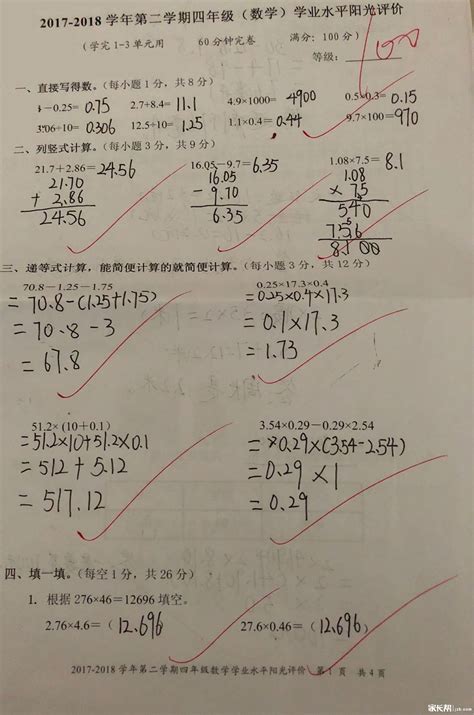 2017-2018 学年第二学期四年级（数学）学业水平阳光评价
（学完1-3单元用 60分钟完卷 满分：100分）
等级： 100
一、直接写得数。（每小题1分，共8分）
1－0.25= 0.75 2.7+8.4= 11.1 4.9×1000= 4900 0.5×0.3= 0.15
3.06÷10= 0.306 12.5÷10= 1.25 1.1×0.4= 0.44 9.7×100= 970
二、列竖式计算。（每小题3分，共9分）
21.7+2.86= 24.56 16.05－9.7= 6.35 1.08×7.5= 8.1
21.70 16.05 1.08
+ 2.86 － 9.70 × 7.5
24.56 6.35 540
756
8.100
三、递等式计算，能简便计算的就简便计算。（每小题3分，共12分）
70.8－1.25－1.75 0.25×17.3×0.4
= 70.8-(1.25+1.75) = 0.25×0.4×17.3
= 70.8 - 3 = 0.1×17.3
= 67.8 = 1.73
51.2×(10+0.1) 3.54×0.29－0.29×2.54
= 51.2×10+51.2×0.1 = 0.29×(3.54-2.54)
= 512 + 5.12 = 0.29 × 1
= 517.12 = 0.29
四、填一填。（每空1分，共26分）
1. 根据276×46=12696填空。
2.76×4.6=（ 12.696 ） 27.6×0.46=（ 12.696 ）
2017-2018 学年第二学期四年级数学学业水平阳光评价 第1页 共4页
家长帮